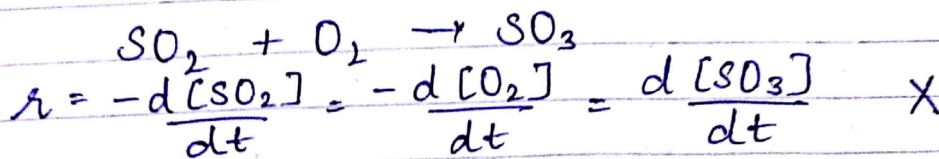 SO₂ + O₂ → SO₃
r = -d[SO₂]/dt = -d[O₂]/dt = d[SO₃]/dt X